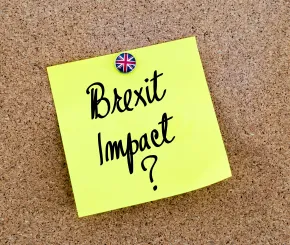 Brexit
Impact
?